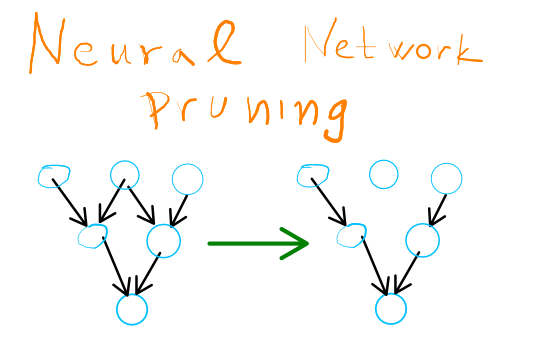 Neural Network
Pruning